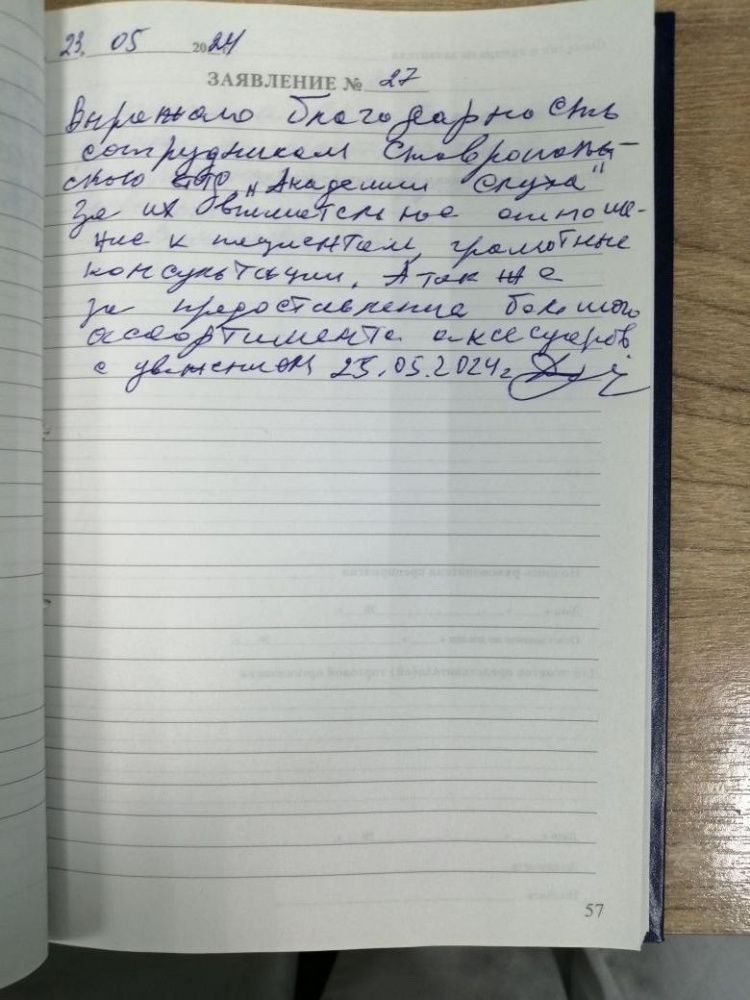 23. 05 2024
ЗАЯВЛЕНИЕ № 27
Выражаю благодарность
сотрудникам Ставрополь-
ского "Академии Слуха"
За их внимательное отноше-
ние к пациентам, грамотные
консультации. А так же
за предоставление большого
ассортимента аксесуаров
с уважением 23.05.2024г
57